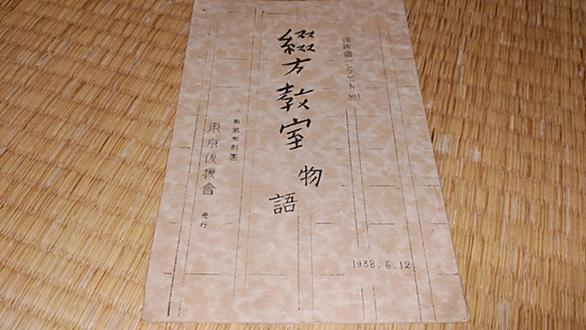 後援會パンフレット №1
綴方教室
物語
新築地劇團
東京後援會 発行
1938.6.12